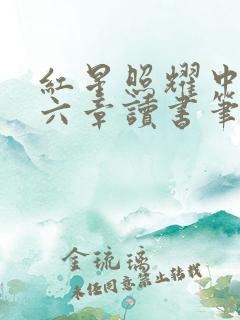 紅星照耀中
六章讀書筆
金琉璃
未经同意禁止转载